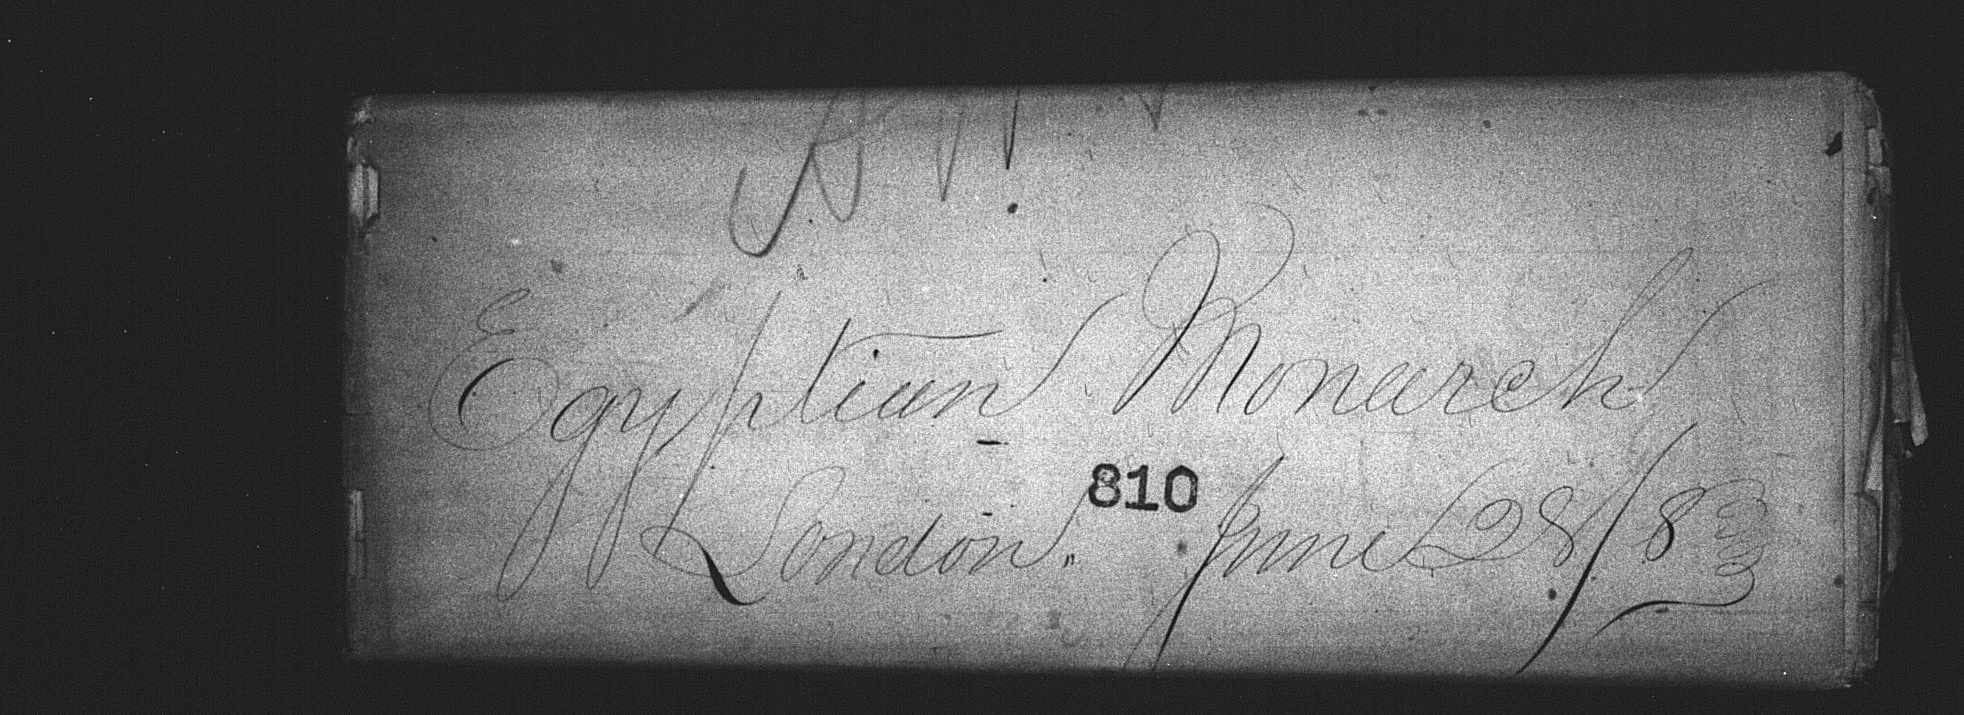 Egyptian Monarch
810
London. June 28/83